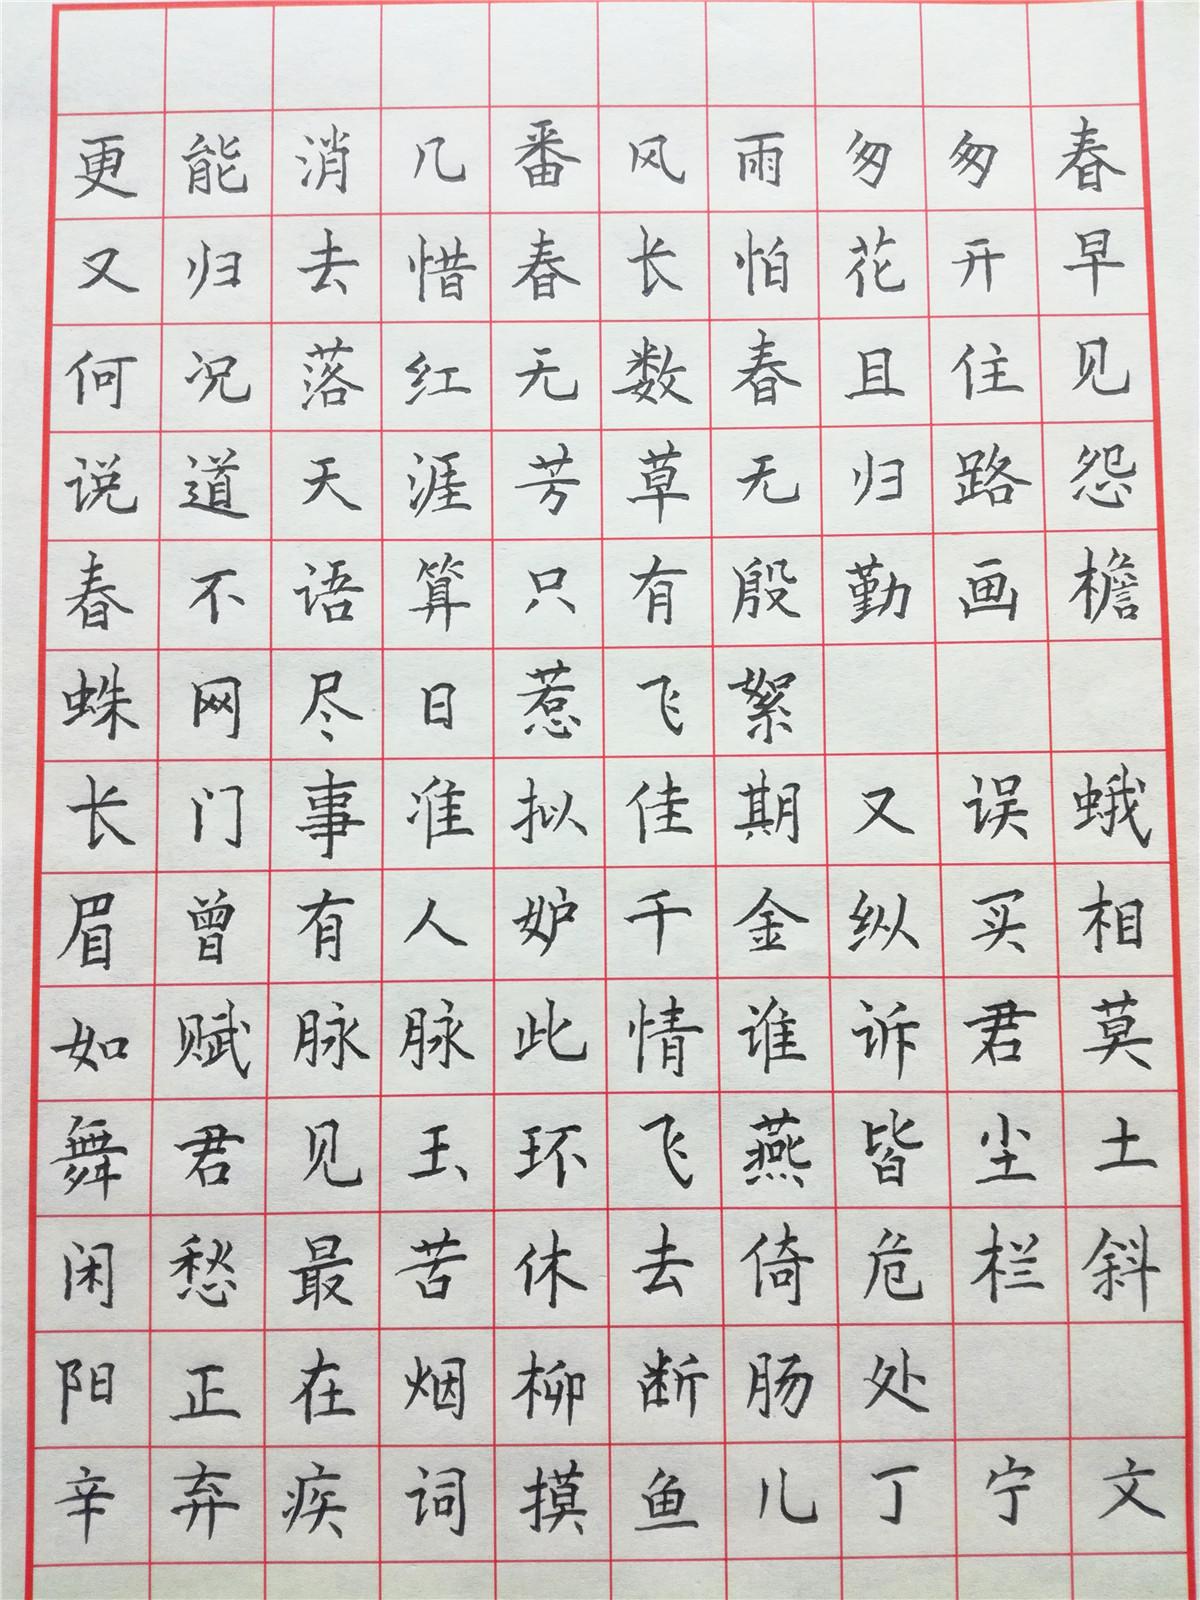 更能消几番风雨匆匆春
又归去惜春长怕花开早
何况落红无数春且住见
说道天涯芳草无归路怨
春不语算只有殷勤画檐
蛛网尽日惹飞絮
长门事准拟佳期又误蛾
眉曾有人妒千金纵买相
如赋脉脉此情谁诉君莫
舞君见玉环飞燕皆尘土
闲愁最苦休去倚危栏斜
阳正在烟柳断肠处
辛弃疾词摸鱼儿丁宁文